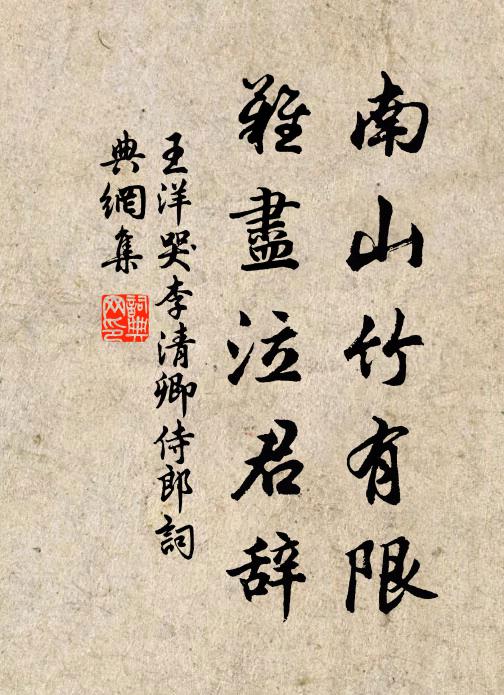 南山竹有限
難盡泣君辞
王洋哭李清卿侍郎詞
典網集
詞典網印